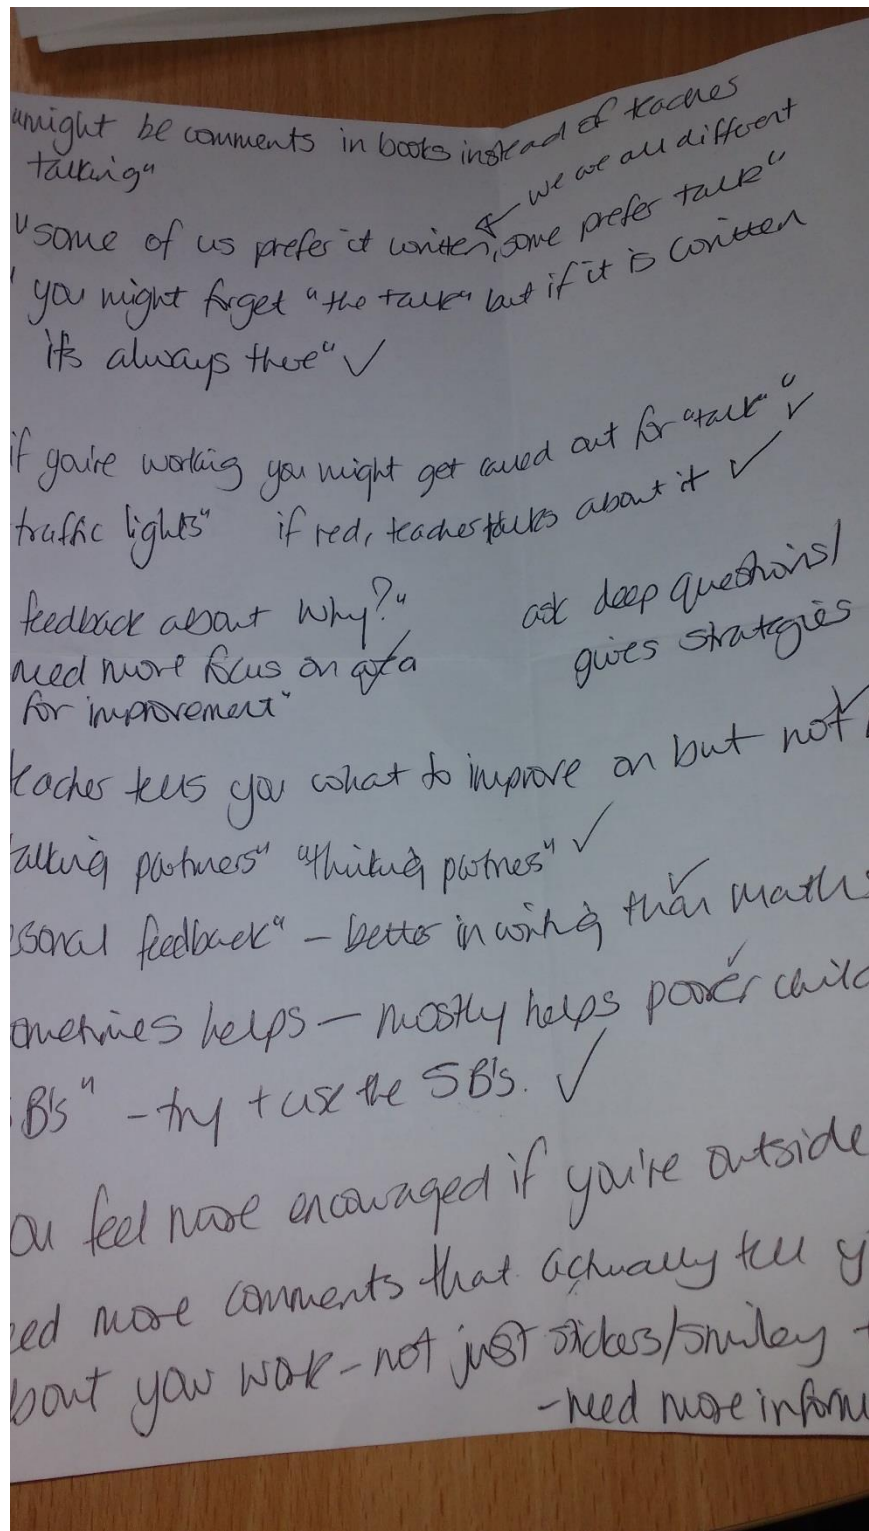 "might be comments in books instead of teaches
talking"
we are all different
"some of us prefer it written, some prefer talk"
' you might forget "the talk" but if it is written
it's always there" ✓
if you're working you might get called out for "talk" " ✓
traffic lights" if red, teacher talks about it ✓
feedback about why?" ask deep questions/
need more focus on gives strategies
for improvement"
eacher tells you what to improve on but not
alking partners" "thinking partners" ✓
sonal feedback" - better in writing than maths
ometimes helps - mostly helps poorer child
B's" - try + use the 5B's. ✓
ou feel more encouraged if you're outside
eed more comments that actually tell y
bout your work - not just stickers/smiley
- need more inform